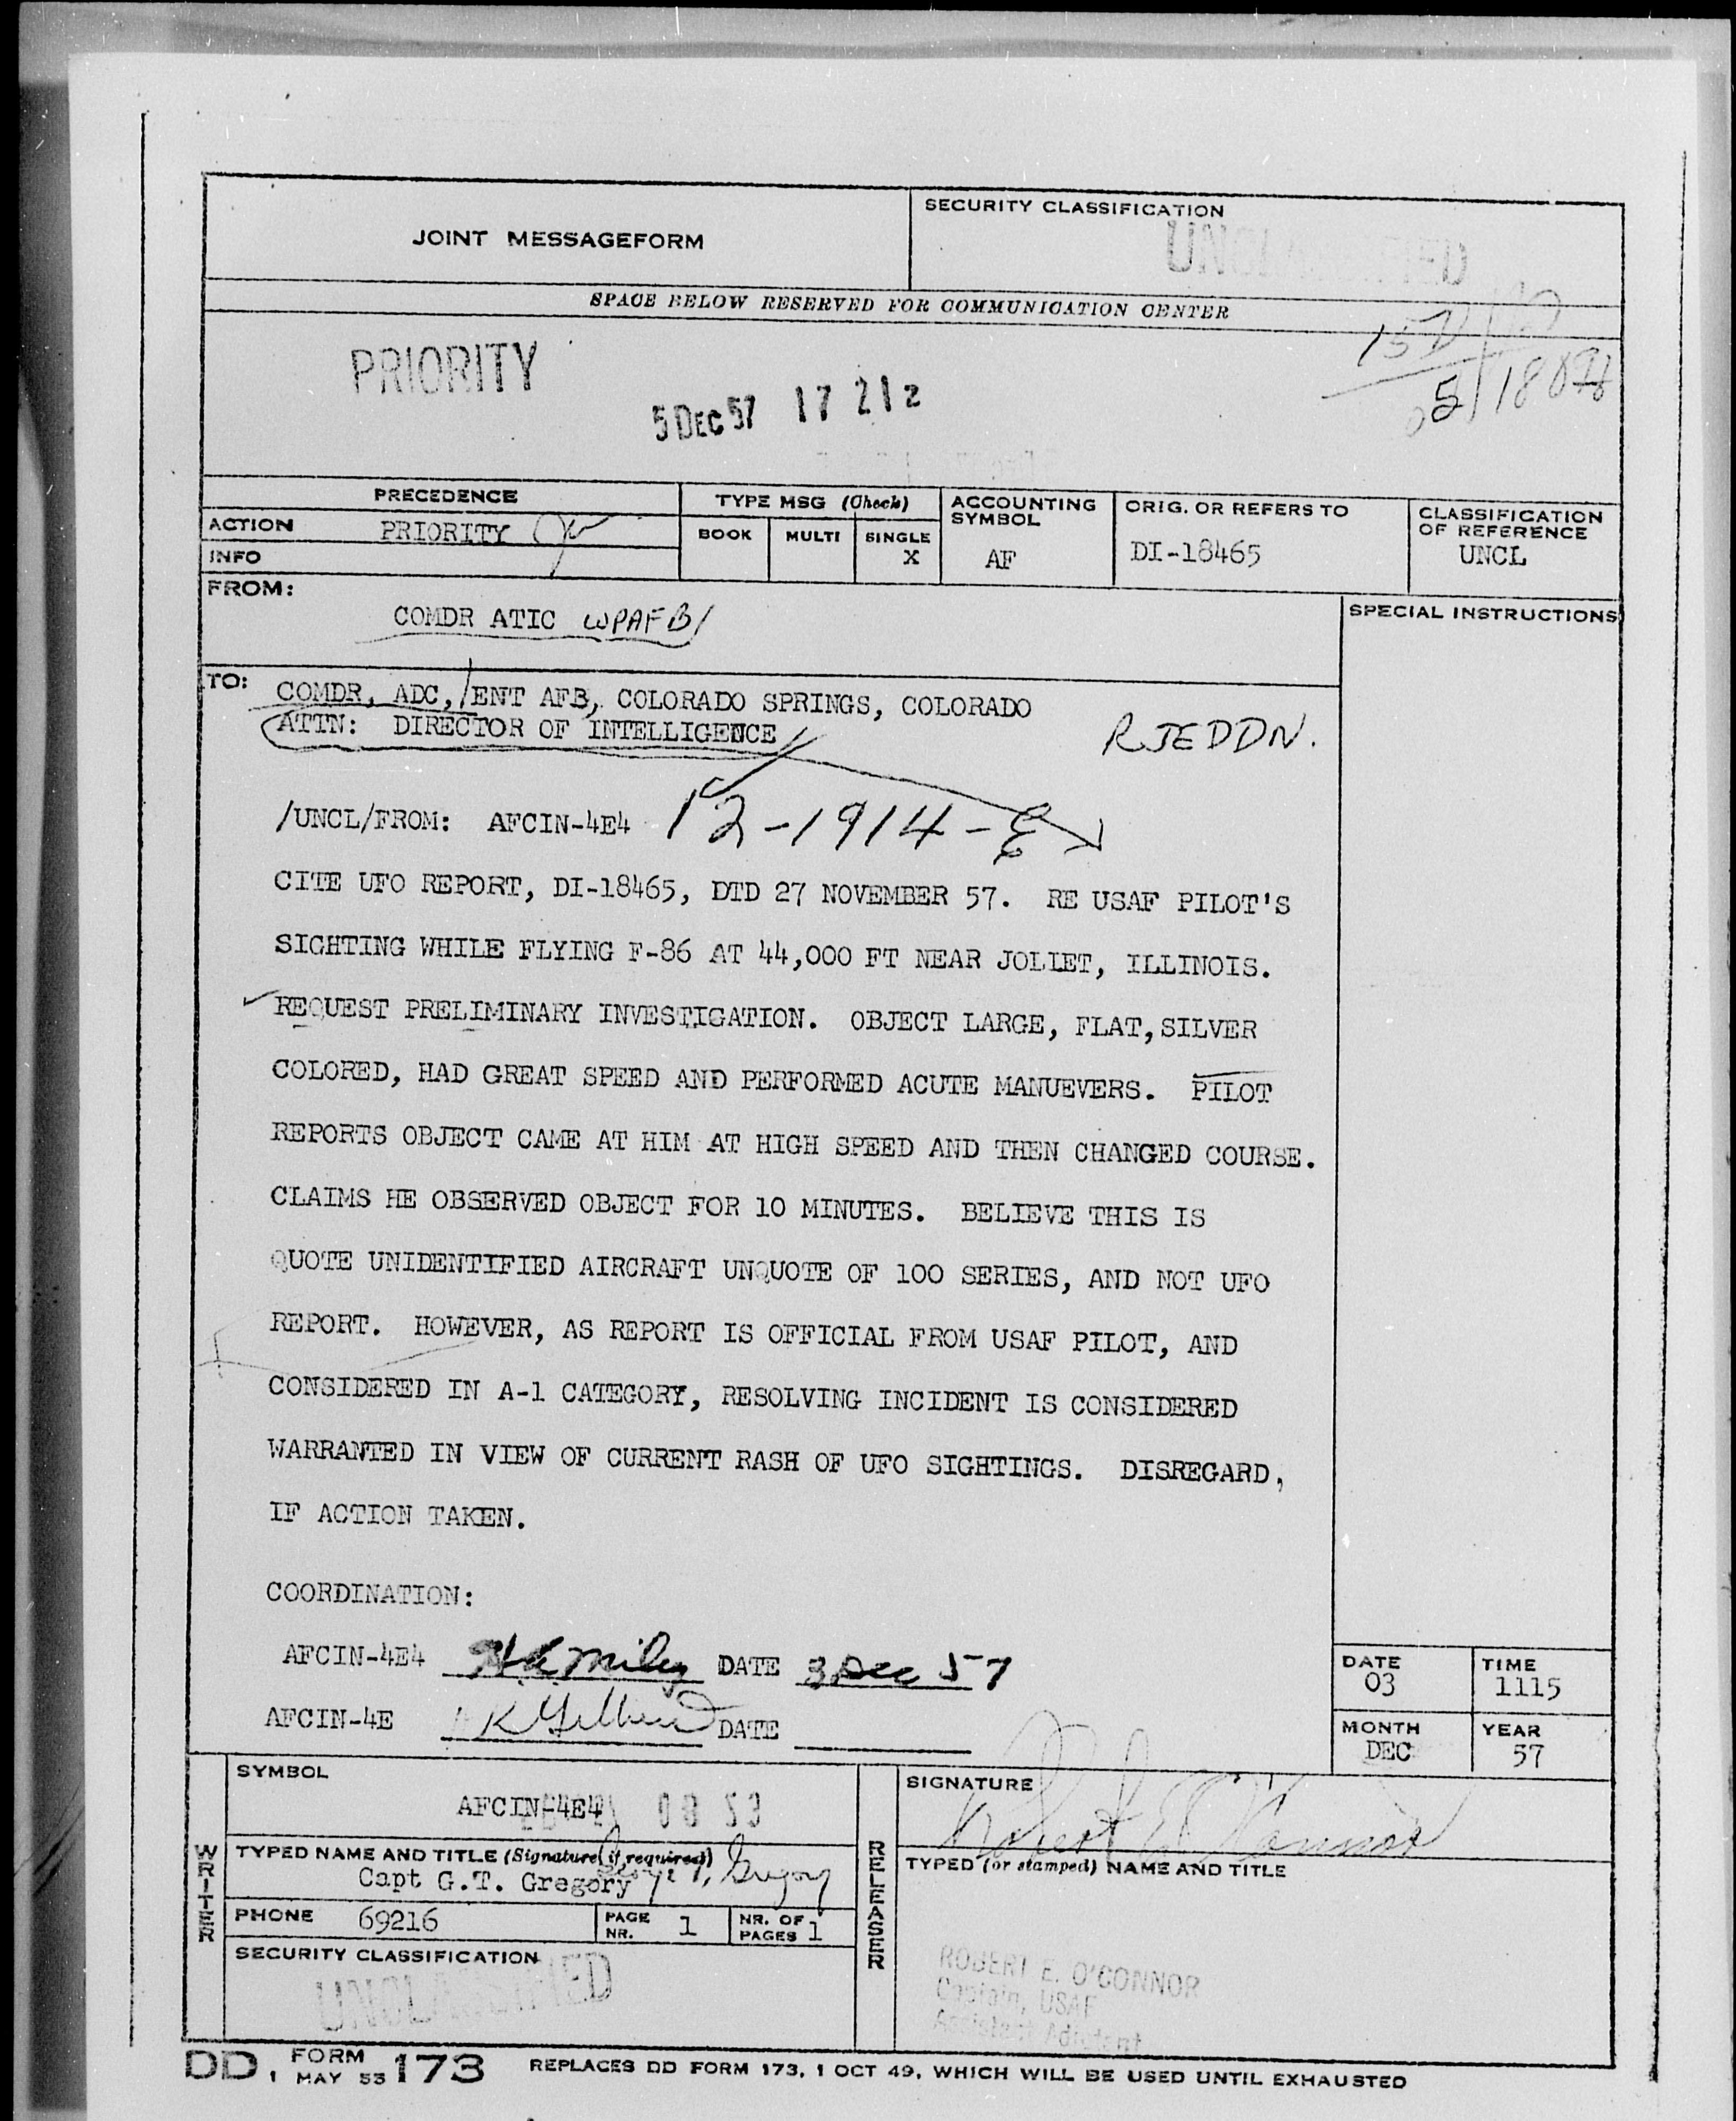 JOINT MESSAGEFORM
SECURITY CLASSIFICATION
UNCLASSIFIED
SPACE BELOW RESERVED FOR COMMUNICATION CENTER
PRIORITY
5 DEC 57 17 21 2
PRECEDENCE
TYPE MSG (Check)
ACCOUNTING SYMBOL
ORIG. OR REFERS TO
CLASSIFICATION OF REFERENCE
ACTION PRIORITY
BOOK MULTI SINGLE
X
AF
DI-18465
UNCL
INFO
FROM:
COMDR ATIC WPAFB
SPECIAL INSTRUCTIONS
TO: COMDR, ADC, ENT AFB, COLORADO SPRINGS, COLORADO
ATTN: DIRECTOR OF INTELLIGENCE
RJEDDN.
/UNCL/FROM: AFCIN-4E4 12-1914-E
CITE UFO REPORT, DI-18465, DTD 27 NOVEMBER 57. RE USAF PILOT'S
SIGHTING WHILE FLYING F-86 AT 44,000 FT NEAR JOLIET, ILLINOIS.
REQUEST PRELIMINARY INVESTIGATION. OBJECT LARGE, FLAT, SILVER
COLORED, HAD GREAT SPEED AND PERFORMED ACUTE MANUEVERS. PILOT
REPORTS OBJECT CAME AT HIM AT HIGH SPEED AND THEN CHANGED COURSE.
CLAIMS HE OBSERVED OBJECT FOR 10 MINUTES. BELIEVE THIS IS
QUOTE UNIDENTIFIED AIRCRAFT UNQUOTE OF 100 SERIES, AND NOT UFO
REPORT. HOWEVER, AS REPORT IS OFFICIAL FROM USAF PILOT, AND
CONSIDERED IN A-1 CATEGORY, RESOLVING INCIDENT IS CONSIDERED
WARRANTED IN VIEW OF CURRENT RASH OF UFO SIGHTINGS. DISREGARD,
IF ACTION TAKEN.
COORDINATION:
AFCIN-4E4 DATE 3 Dec 57
AFCIN-4E DATE
DATE
03
TIME
1115
MONTH
DEC
YEAR
57
WRITER
SYMBOL
AFCIN-4E4
TYPED NAME AND TITLE (Signature, if required)
Capt G.T. Gregory
PHONE 69216
PAGE NR. 1
NR. OF PAGES 1
SECURITY CLASSIFICATION
UNCLASSIFIED
RELEASER
SIGNATURE
Robert E O'Connor
TYPED (or stamped) NAME AND TITLE
ROBERT E. O'CONNOR
Captain, USAF
Assistant Adjutant
DD, FORM 1 MAY 53 173 REPLACES DD FORM 173, 1 OCT 49, WHICH WILL BE USED UNTIL EXHAUSTED